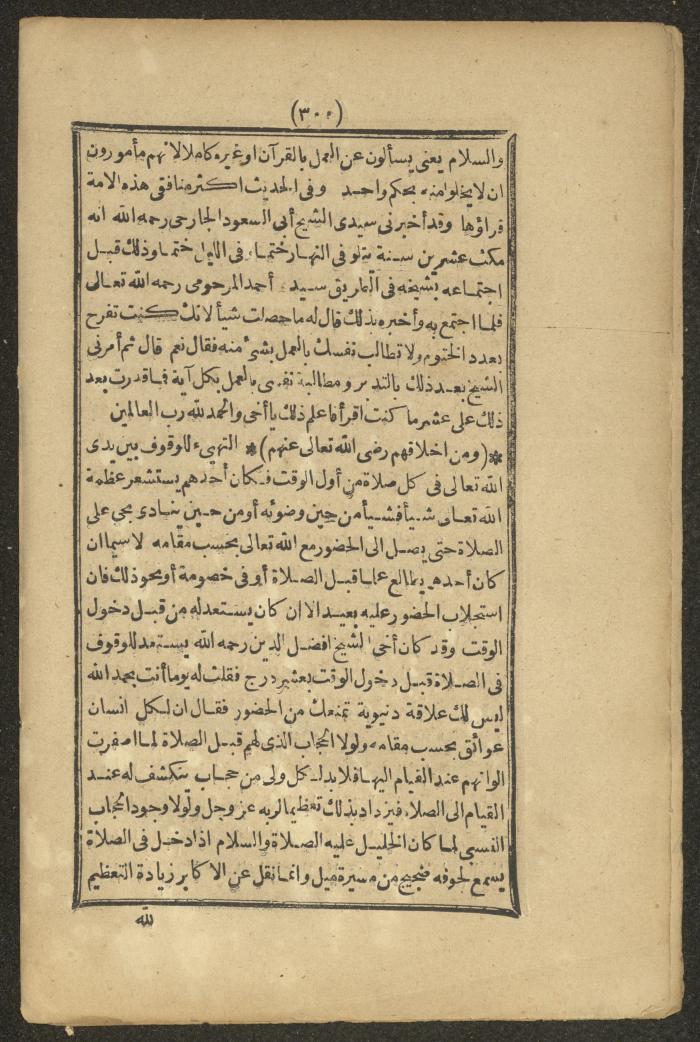 (٣٠٠)
والسلام يعنى يسألون عن العمل بالقرآن أو غيره كاملا لانهم مأمورون
ان لا يخلوا منه بحكم واحد وفى الحديث اكثر منافقى هذه الامة
قراؤها وقد أخبرنى سيدى الشيخ أبى السعود الجارحى رحمه الله انه
مكث عشرين سنة يتلو فى النهار ختما وفى الليل ختما وذلك قبل
اجتماعه بشيخه فى الطريق سيدى أحمد المرحومى رحمه الله تعالى
فلما اجتمع به وأخبره بذلك قال له ما حصلت شيأ لانك كنت تفرح
بعدد الختوم ولا تطالب نفسك بالعمل بشئ منه فقال نعم قال ثم أمرنى
الشيخ بعد ذلك بالتدبر ومطالبة نفسى بالعمل بكل آية فما قدرت بعد
ذلك على عشر ما كنت اقرأ فاعلم ذلك يا أخى والحمد لله رب العالمين
*(ومن اخلاقهم رضى الله تعالى عنهم)* التهيئ للوقوف بين يدى
الله تعالى فى كل صلاة من أول الوقت فكان أحدهم يستشعر عظمة
الله تعالى شيأ فشيأ من حين وضوئه أو من حين ينادى بحى على
الصلاة حتى يصل الى الحضور مع الله تعالى بحسب مقامه لاسيما ان
كان أحدهم يطالع علما قبل الصلاة أو فى خصومة أو نحو ذلك فان
استجلاب الحضور عليه بعيد الا ان كان يستعد له من قبل دخول
الوقت وقد كان أخى الشيخ افضل الدين رحمه الله يستعد للوقوف
فى الصلاة قبل دخول الوقت بعشر درج فقلت له يوما أنت بحمد الله
ليس لك علاقة دنيوية تمنعك من الحضور فقال ان لكل انسان
عوائق بحسب مقامه ولولا الحجاب الذى لهم قبل الصلاة لما اصفرت
الوانهم عند القيام اليها فلا بد لكل ولى من حجاب ينكشف له عند
القيام الى الصلاة فيزداد بذلك تعظيما لربه عز وجل ولولا وجود الحجاب
النسبى لما كان الخليل عليه الصلاة والسلام اذا دخل فى الصلاة
يسمع لجوفه ضجيج من مسيرة ميل وانما نقل عن الاكابر زيادة التعظيم
لله